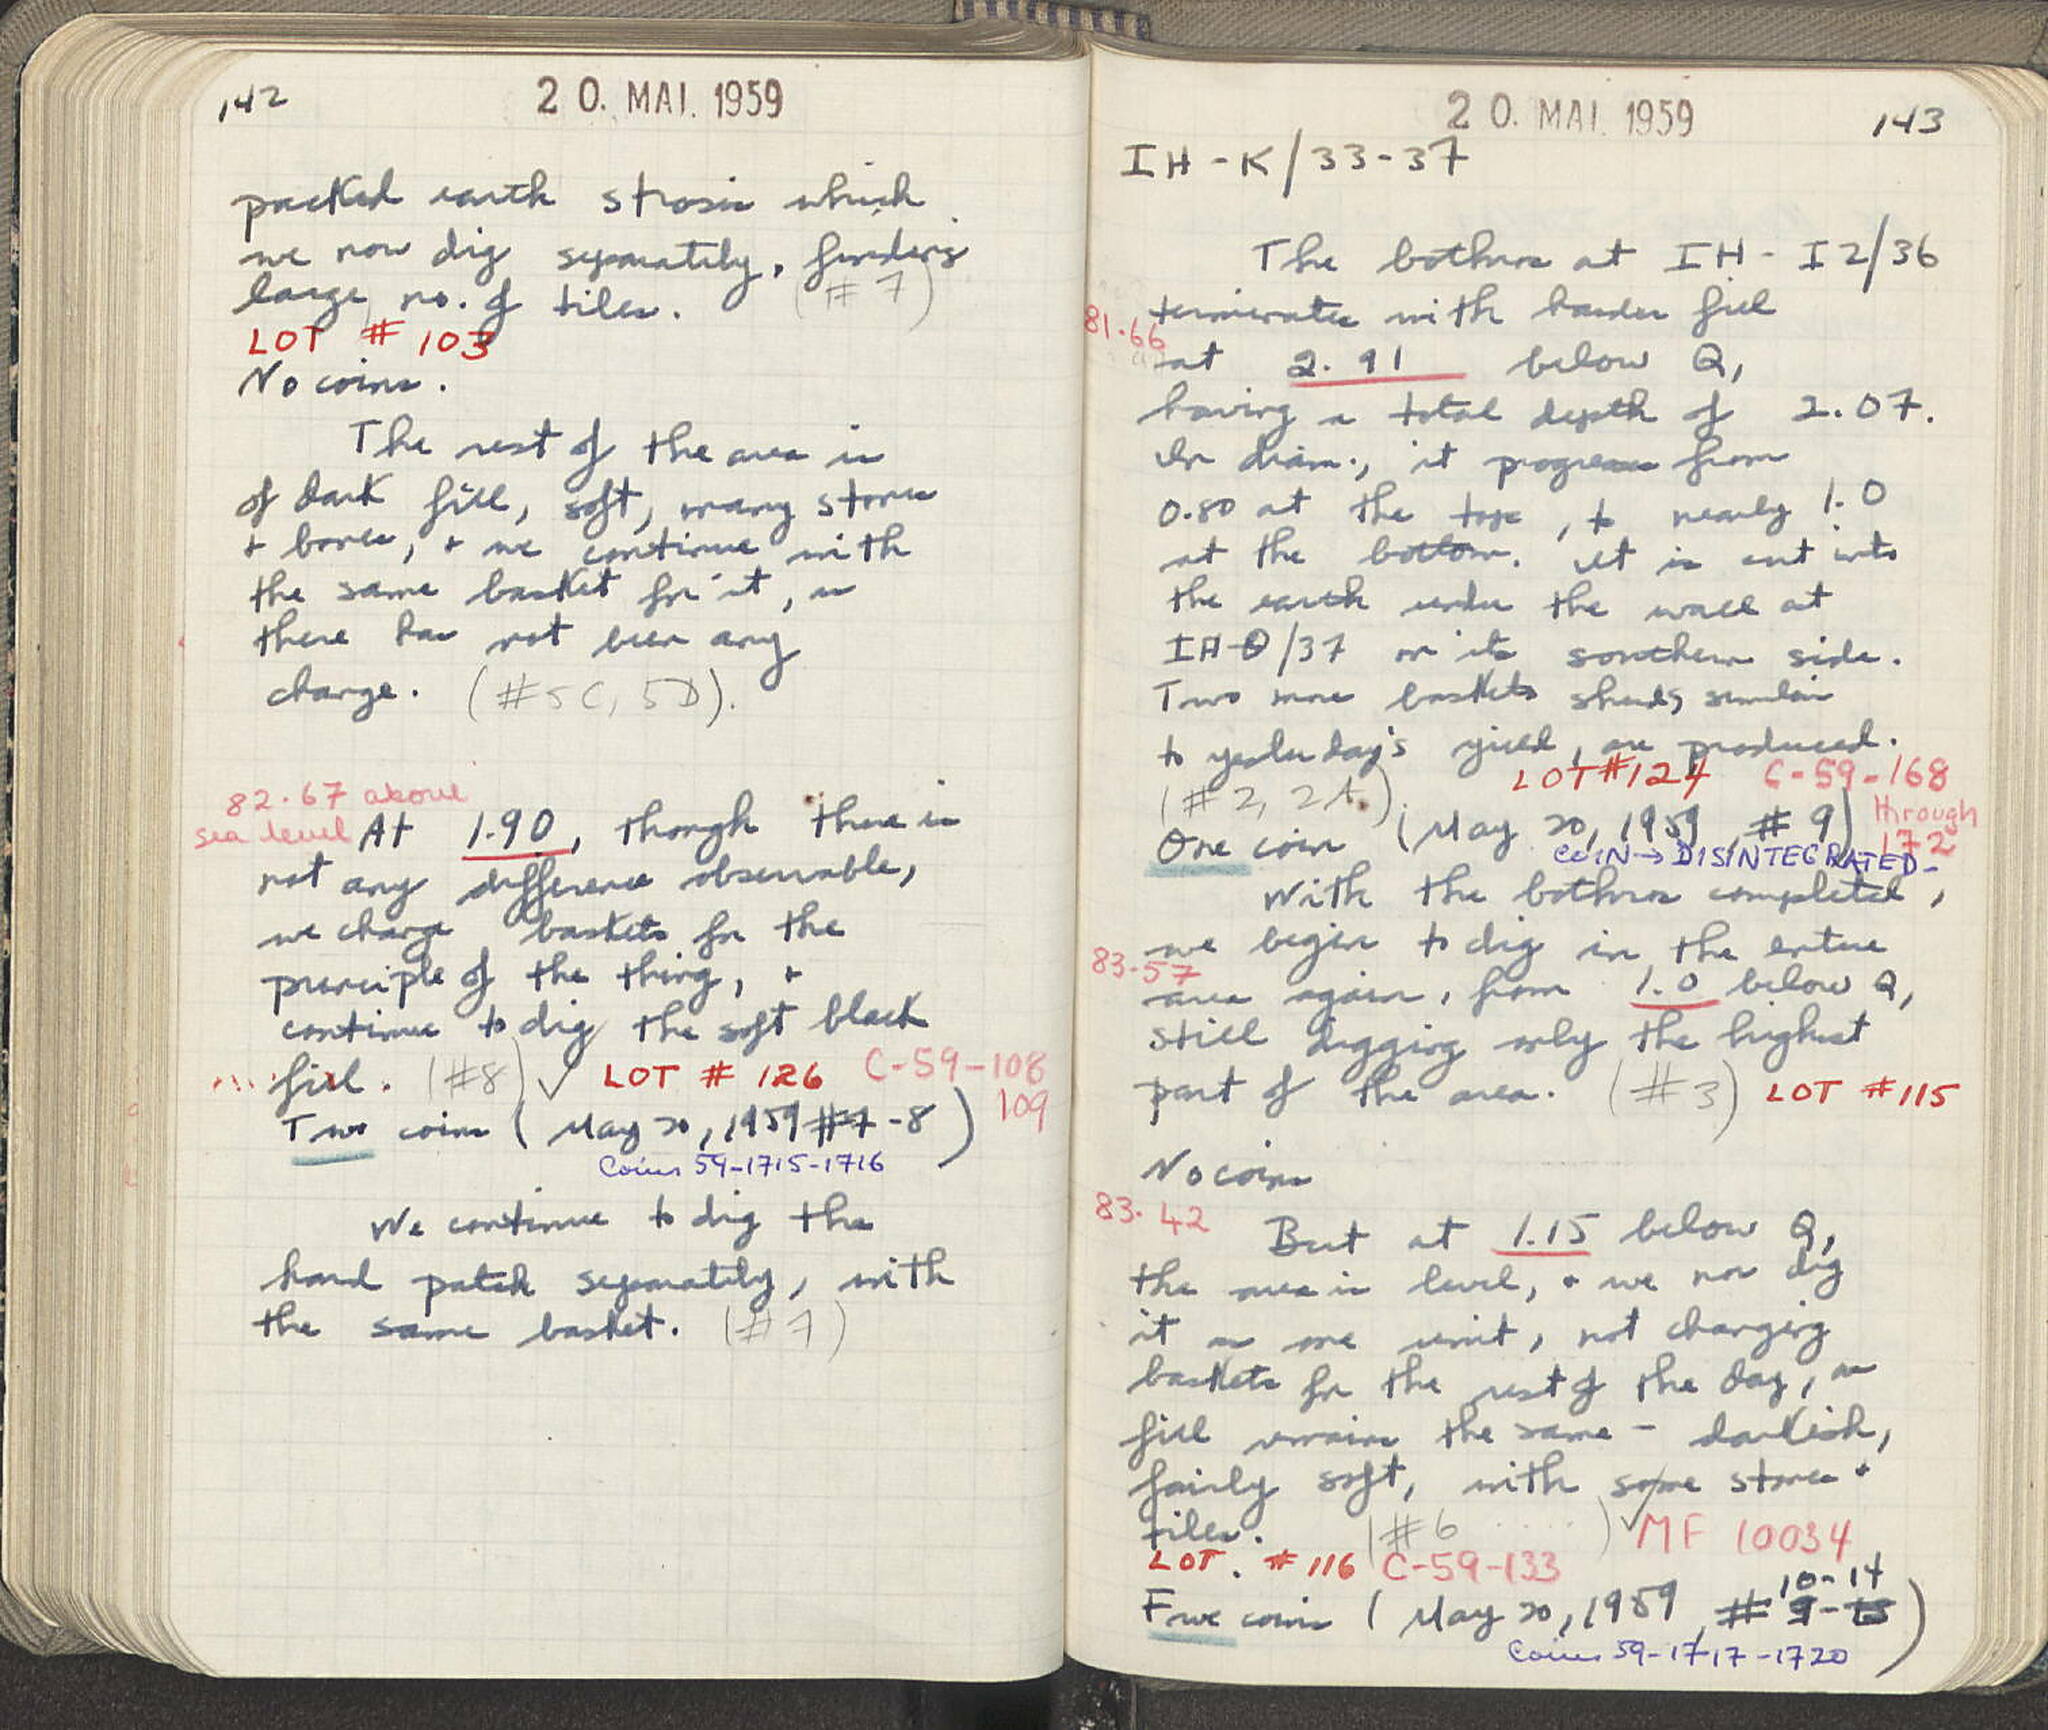 142
20. MAI. 1959
packed earth strosis which
we now dig separately, finding
large no. of tiles. (#7)
LOT # 103
No coins.
The rest of the area is
of dark fill, soft, many stones
+ bones, + we continue with
the same basket for it, as
there has not been any
change. (#5C, 5D).
82.67 above
sea level
At 1.90, though there is
not any difference observable,
we change baskets for the
principle of the thing, +
continue to dig the soft black
fill. (#8) ✓ LOT # 126 C-59-108
109
Two coins (May 20, 1959 #7-8)
Coins 59-1715-1716
We continue to dig the
hard patch separately, with
the same basket. (#7)
20. MAI. 1959
143
IH-K/33-37
The bothros at IH-I2/36
terminates with harder fill
81.66
at 2.91 below Q,
having a total depth of 2.07.
In diam., it progresses from
0.80 at the top, to nearly 1.0
at the bottom. It is cut into
the earth under the wall at
IH-Θ/37 on its southern side.
Two more baskets sherds, similar
to yesterday's yield, are produced.
(#2, 2A). LOT #124 C-59-168
through
172
One coin (May 20, 1959, #9)
COIN → DISINTEGRATED-
With the bothros completed,
we begin to dig in the entire
83.57
area again, from 1.0 below Q,
still digging only the highest
part of the area. (#3) LOT #115
No coins
83.42
But at 1.15 below Q,
the area is level, + we now dig
it as one unit, not changing
baskets for the rest of the day, as
fill remains the same - darkish,
fairly soft, with some stones +
tiles. (#6 .....) ✓ MF 10034
LOT. #116 C-59-133
10-14
Five coins (May 20, 1959, # 9-13)
Coins 59-1717-1720